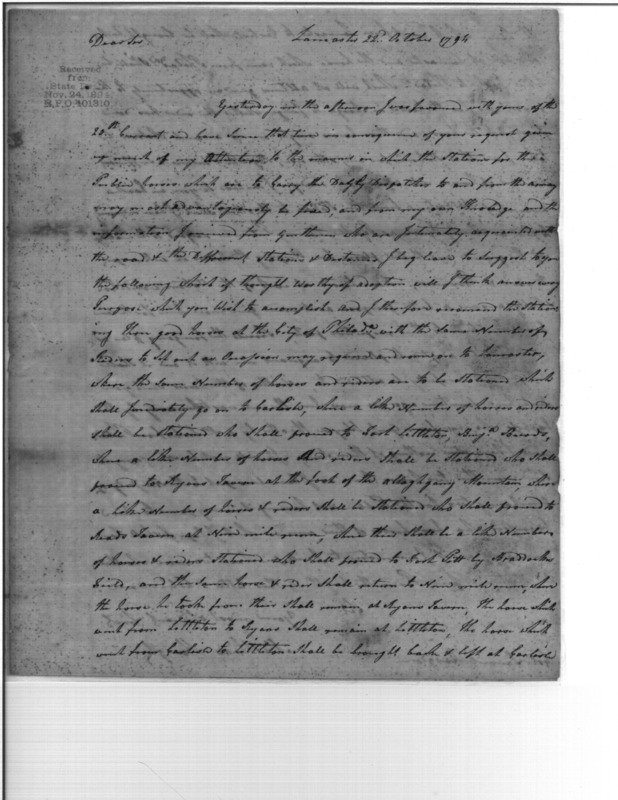 Dear Sir
Lancaster 22d October 1794
Received
from
State
Nov. 24,
Yesterday in the afternoon I was favoured with yours of the
20th Current and have Since that time in consequence of your request given
as much of my Attention to the manner in which the Stations for the
Public horses which are to Carry the Dispatches to and from the army
may most advantageously be fixed, and from my own Knowledge and the
information from Gentlemen who are acquainted with
the road & the Different Stations & Distances I beg leave to Suggest to you
the following which I thought Worthy of adoption will I think answer every
Purpose which you Wish to accomplish and I therefore recommend the Station
ing three good horses at the City of Philada with the Same Number of
Riders to Set out as Occasion may require and come on to Lancaster,
where the Same Number of horses and riders are to be Stationed which
Shall go on to Carlisle, where a like Number of horses and riders
Shall be Stationed who Shall proceed to Fort Littleton, Benja
where a like Number of horses And riders Shall be Stationed who Shall
proceed to Ryans Tavern at the foot of the Allegheny Mountain where
a like Number of horses & riders Shall be Stationed who Shall proceed to
Tavern at Nine mile run, where there Shall be a like Number
of horses & riders Stationed who Shall proceed to Fort Pitt by Braddocks
field, and the Same horse & rider Shall return to Nine mile run, where
the horse he took from there Shall remain at Ryans Tavern, the horse which
went from Littleton to Ryans Shall remain at Littleton, the horse which
went from Carlisle to Littleton Shall be brought back & left at Carlisle